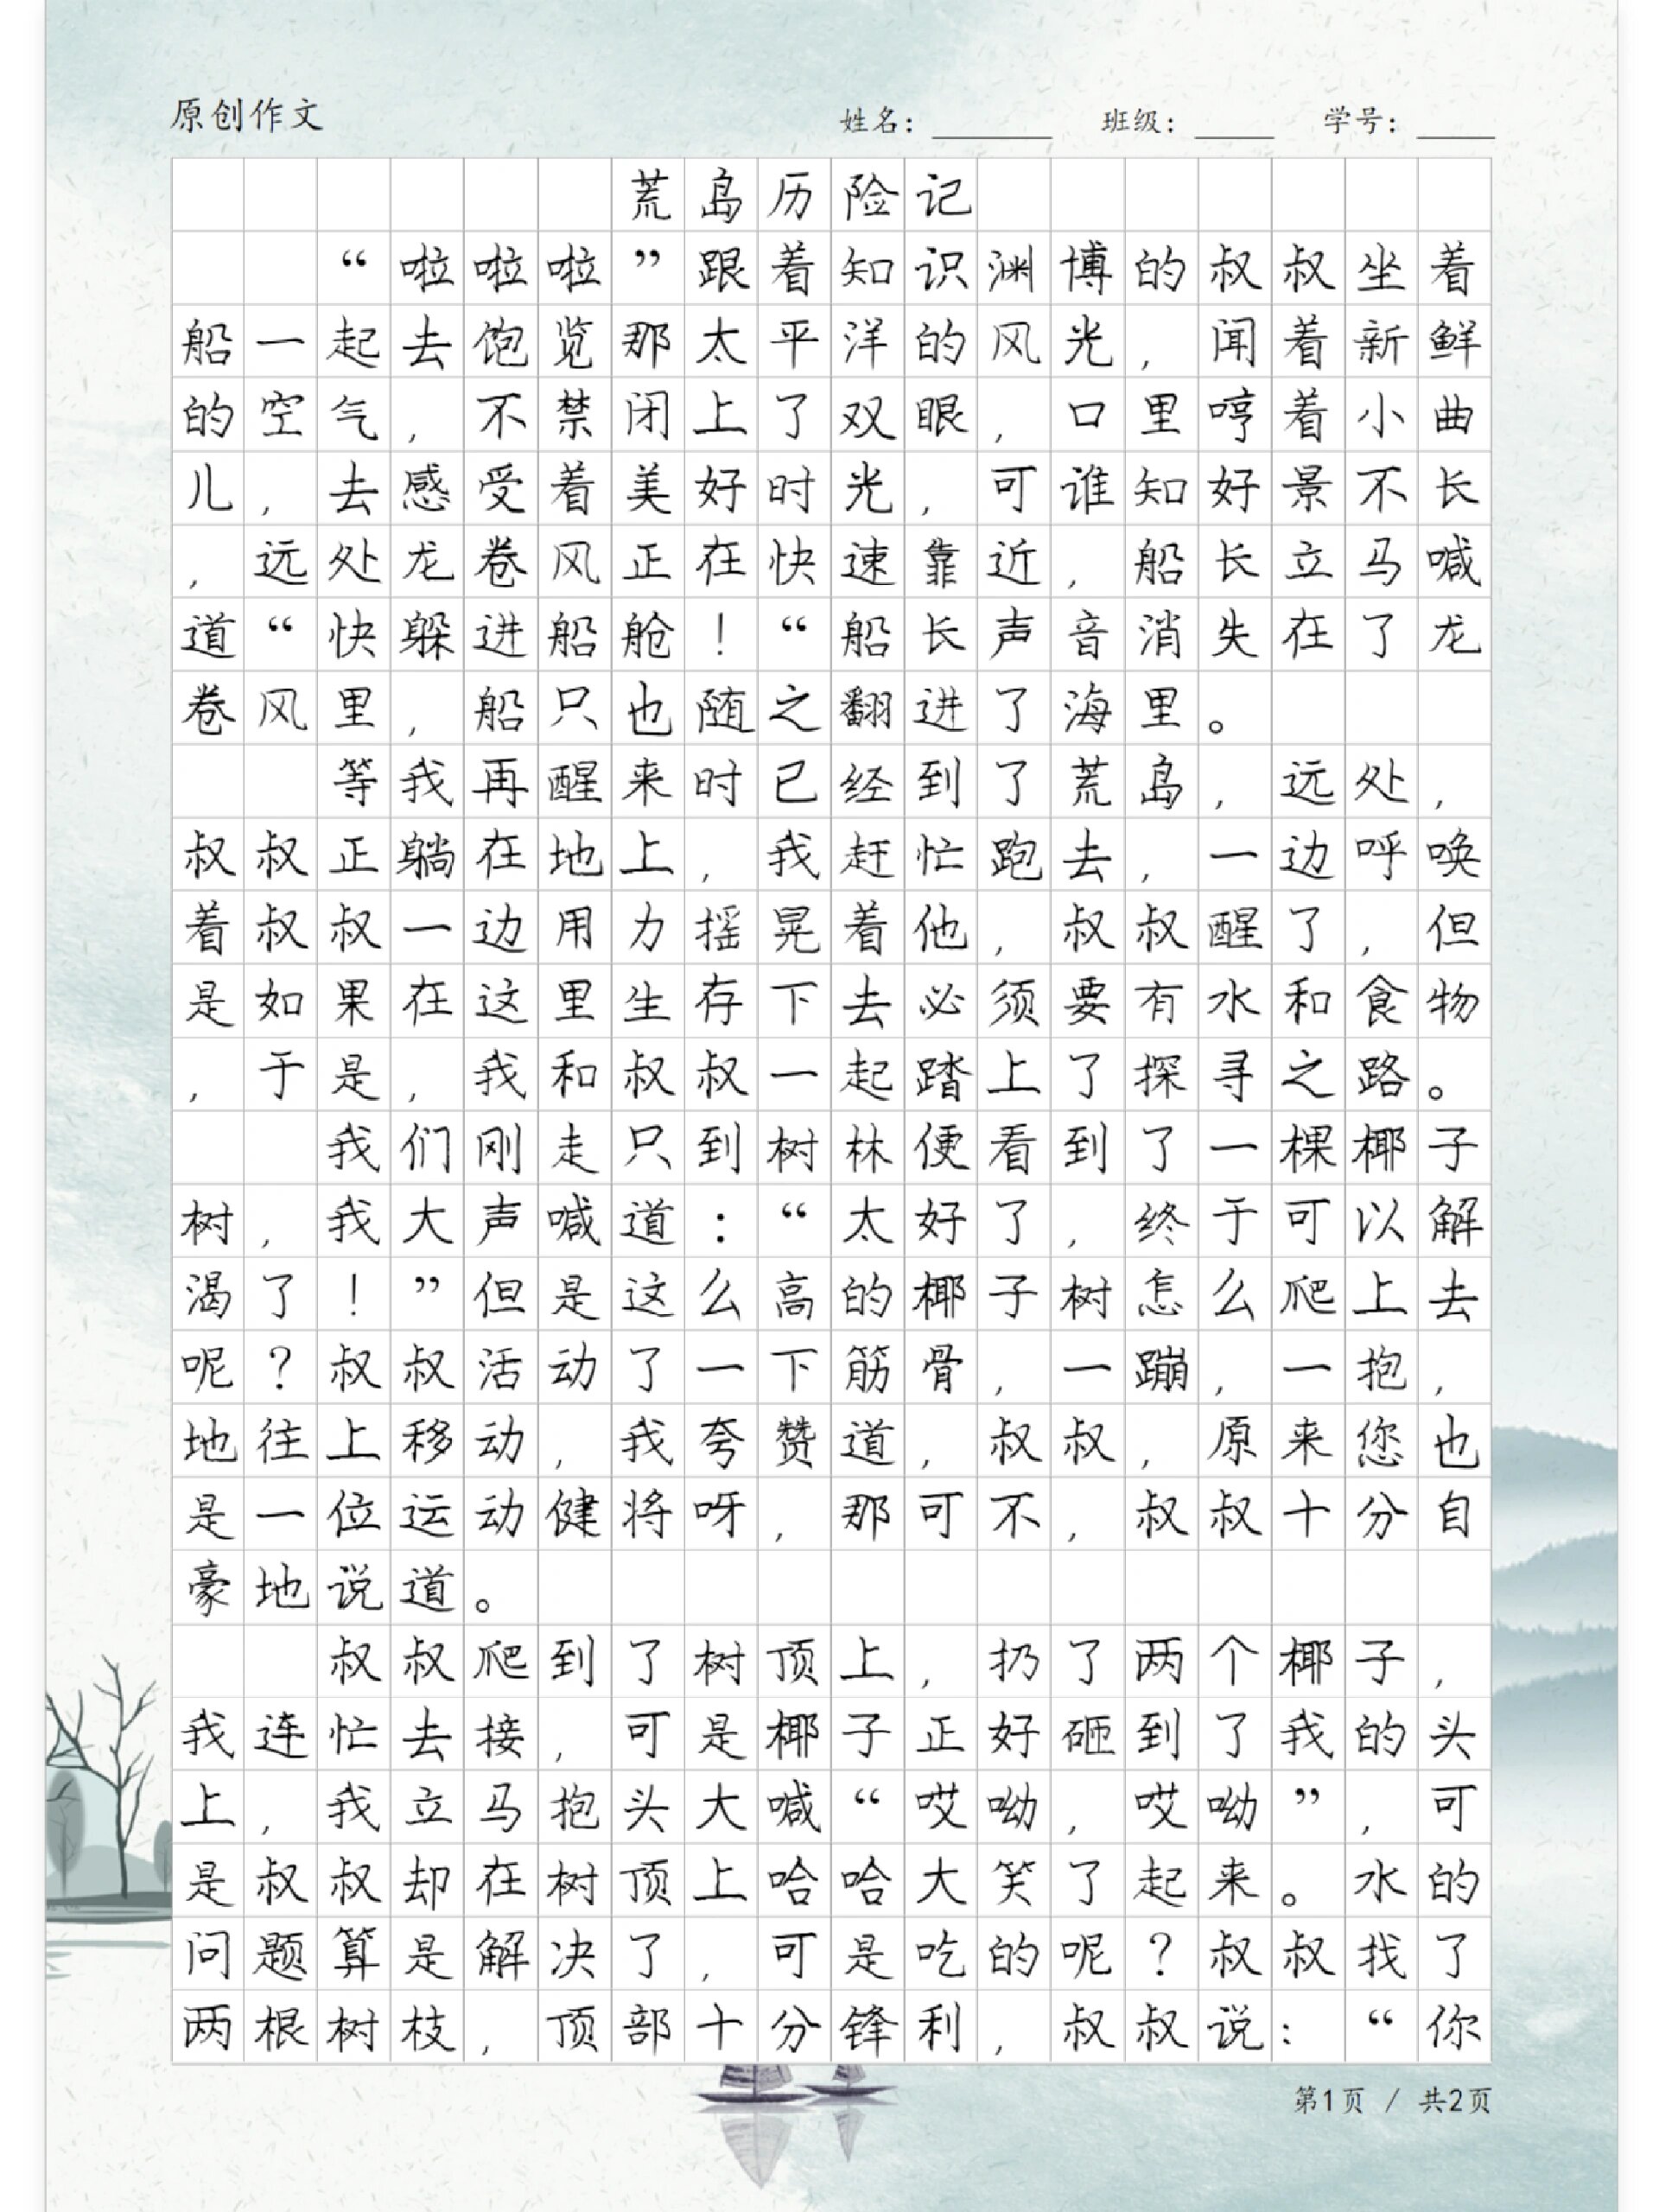 原创作文
姓名: 班级: 学号:
荒岛历险记
“啦啦啦”跟着知识渊博的叔叔坐着
船一起去饱览那太平洋的风光,闻着新鲜
的空气,不禁闭上了双眼,口里哼着小曲
儿,去感受着美好时光,可谁知好景不长
,远处龙卷风正在快速靠近,船长立马喊
道“快躲进船舱!“船长声音消失在了龙
卷风里,船只也随之翻进了海里。
等我再醒来时已经到了荒岛,远处,
叔叔正躺在地上,我赶忙跑去,一边呼唤
着叔叔一边用力摇晃着他,叔叔醒了,但
是如果在这里生存下去必须要有水和食物
,于是,我和叔叔一起踏上了探寻之路。
我们刚走只到树林便看到了一棵椰子
树,我大声喊道:“太好了,终于可以解
渴了!”但是这么高的椰子树怎么爬上去
呢?叔叔活动了一下筋骨,一蹦,一抱,
地往上移动,我夸赞道,叔叔,原来您也
是一位运动健将呀,那可不,叔叔十分自
豪地说道。
叔叔爬到了树顶上,扔了两个椰子,
我连忙去接,可是椰子正好砸到了我的头
上,我立马抱头大喊“哎呦,哎呦”,可
是叔叔却在树顶上哈哈大笑了起来。水的
问题算是解决了,可是吃的呢?叔叔找了
两根树枝,顶部十分锋利,叔叔说:“你
第1页 / 共2页